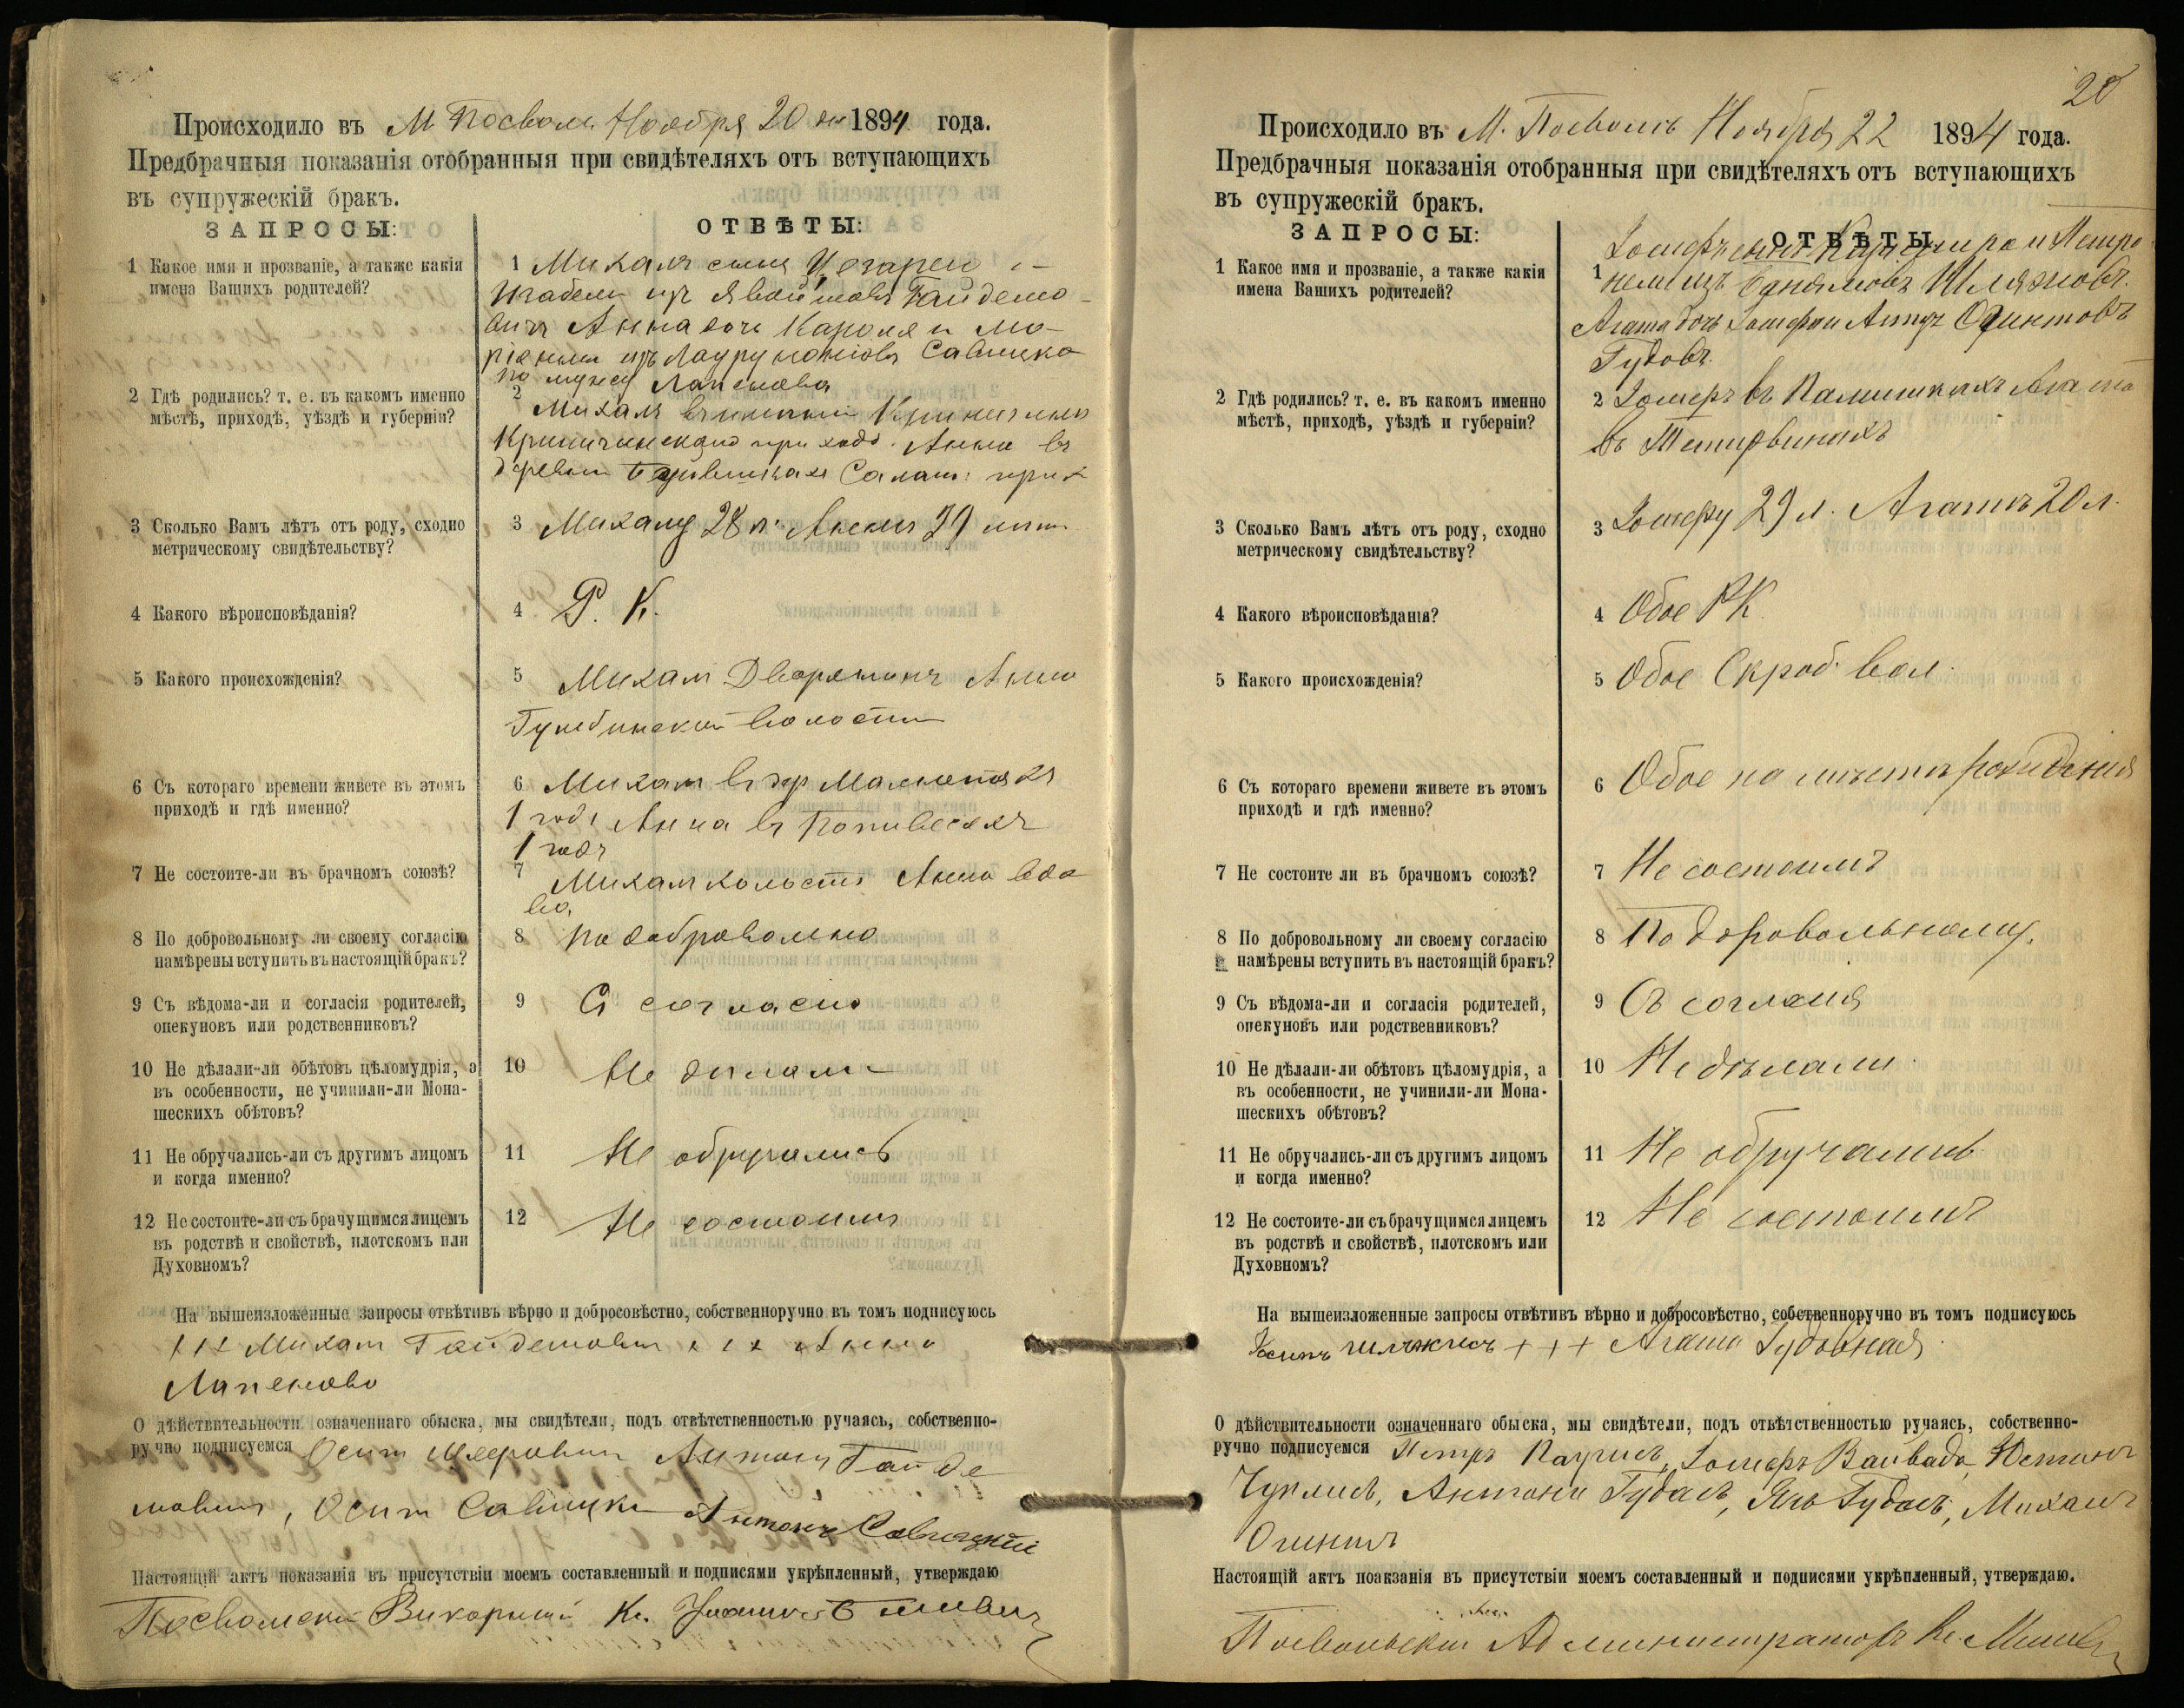 Происходило въ М Посволи Ноября 20 дня 1894 года.
Предбрачныя показанія отобранныя при свидѣтеляхъ отъ вступающихъ
въ супружескій бракъ.
ЗАПРОСЫ:
ОТВѢТЫ:
1 Какое имя и прозваніе, а также какія
имена Вашихъ родителей?
1 Михалъ сынъ Цезарея и
Изабели изъ Гайдемо-
вичъ Анна дочь Кароля и Мо-
ріянны изъ Савицко
по мужу Лапенова
2 Гдѣ родились? т. е. въ какомъ именно
мѣстѣ, приходѣ, уѣздѣ и губерніи?
2 Михалъ въ имѣніи
прихода. Анна въ
деревни Салат. прих
3 Сколько Вамъ лѣтъ отъ роду, сходно
метрическому свидѣтельству?
3 Михалу 28 л. Анны 39 лѣтъ
4 Какого вѣроисповѣданія?
4 Р. К.
5 Какого происхожденія?
5 Михалъ Дворянинъ Анна
Гумбинской волости
6 Съ котораго времени живете въ этомъ
приходѣ и гдѣ именно?
6 Михалъ въ
1 годъ Анна въ
1 годъ
7 Не состоите-ли въ брачномъ союзѣ?
7 Михалъ холостъ Анна вдо
ва,
8 По добровольному ли своему согласію
намѣрены вступить въ настоящій бракъ?
8 По добровольно
9 Съ вѣдома-ли и согласія родителей,
опекуновъ или родственниковъ?
9 Съ согласія
10 Не дѣлали-ли обѣтовъ цѣломудрія, а
въ особенности, не учинили-ли Мона-
шескихъ обѣтовъ?
10 Не дѣлали
11 Не обручались-ли съ другимъ лицомъ
и когда именно?
11 Не обручались
12 Не состоите-ли съ брачущимся лицемъ
въ родствѣ и свойствѣ, плотскомъ или
Духовномъ?
12 Не состоимъ
На вышеизложенные запросы отвѣтивъ вѣрно и добросовѣстно, собственноручно въ томъ подписуюсь
x x x Михалъ Гайдемовичъ x x x Анна
Лапенова
О дѣйствительности означеннаго обыска, мы свидѣтели, подъ отвѣтственностью ручаясь, собственно-
ручно подписуемся Осипъ Антонъ Гайде
мовичъ, Осипъ Савицки Антонъ Савицкій
Настоящій актъ показанія въ присутствіи моемъ составленный и подписями укрѣпленный, утверждаю
Посвольскій Викарный Кс.
20
Происходило въ М. Посволѣ Ноября 22 1894 года.
Предбрачныя показанія отобранныя при свидѣтеляхъ отъ вступающихъ
въ супружескій бракъ.
ЗАПРОСЫ:
ОТВѢТЫ
1 Какое имя и прозваніе, а также какія
имена Вашихъ родителей?
Іосифъ сынъ Казимира и Петро
1 нели изъ
Агата дочь Іосифа и
Гудовъ.
2 Гдѣ родились? т. е. въ какомъ именно
мѣстѣ, приходѣ, уѣздѣ и губерніи?
2 Іосифъ въ Агата
въ
3 Сколько Вамъ лѣтъ отъ роду, сходно
метрическому свидѣтельству?
3 Іосифу 29 л. Агатѣ 20 л.
4 Какого вѣроисповѣданія?
4 Обое РК
5 Какого происхожденія?
5 Обое Скроб. вол.
6 Съ котораго времени живете въ этомъ
приходѣ и гдѣ именно?
6 Обое на мѣстѣ рожденія
7 Не состоите ли въ брачномъ союзѣ?
7 Не состоимъ
8 По добровольному ли своему согласію
намѣрены вступить въ настоящій бракъ?
8 По доровольному.
9 Съ вѣдома-ли и согласія родителей,
опекуновъ или родственниковъ?
9 Съ согласія
10 Не дѣлали-ли обѣтовъ цѣломудрія, а
въ особенности, не учинили-ли Мона-
шескихъ обѣтовъ?
10 Не дѣлали.
11 Не обручались-ли съ другимъ лицомъ
и когда именно?
11 Не обручались
12 Не состоите-ли съ брачущимся лицемъ
въ родствѣ и свойствѣ, плотскомъ или
Духовномъ?
12 Не состоимъ
На вышеизложенные запросы отвѣтивъ вѣрно и добросовѣстно, собственноручно въ томъ подписуюсь
+ + + Агата Гудовная
О дѣйствительности означеннаго обыска, мы свидѣтели, подъ отвѣтственностью ручаясь, собственно-
ручно подписуемся Петръ Іосифъ Вайвада, Юстинъ
Антони Гудасъ, Янъ Гудасъ, Михалъ
Настоящій актъ поакзанія въ присутствіи моемъ составленный и подписями укрѣпленный, утверждаю.
Посвольскій Администраторъ Кс.